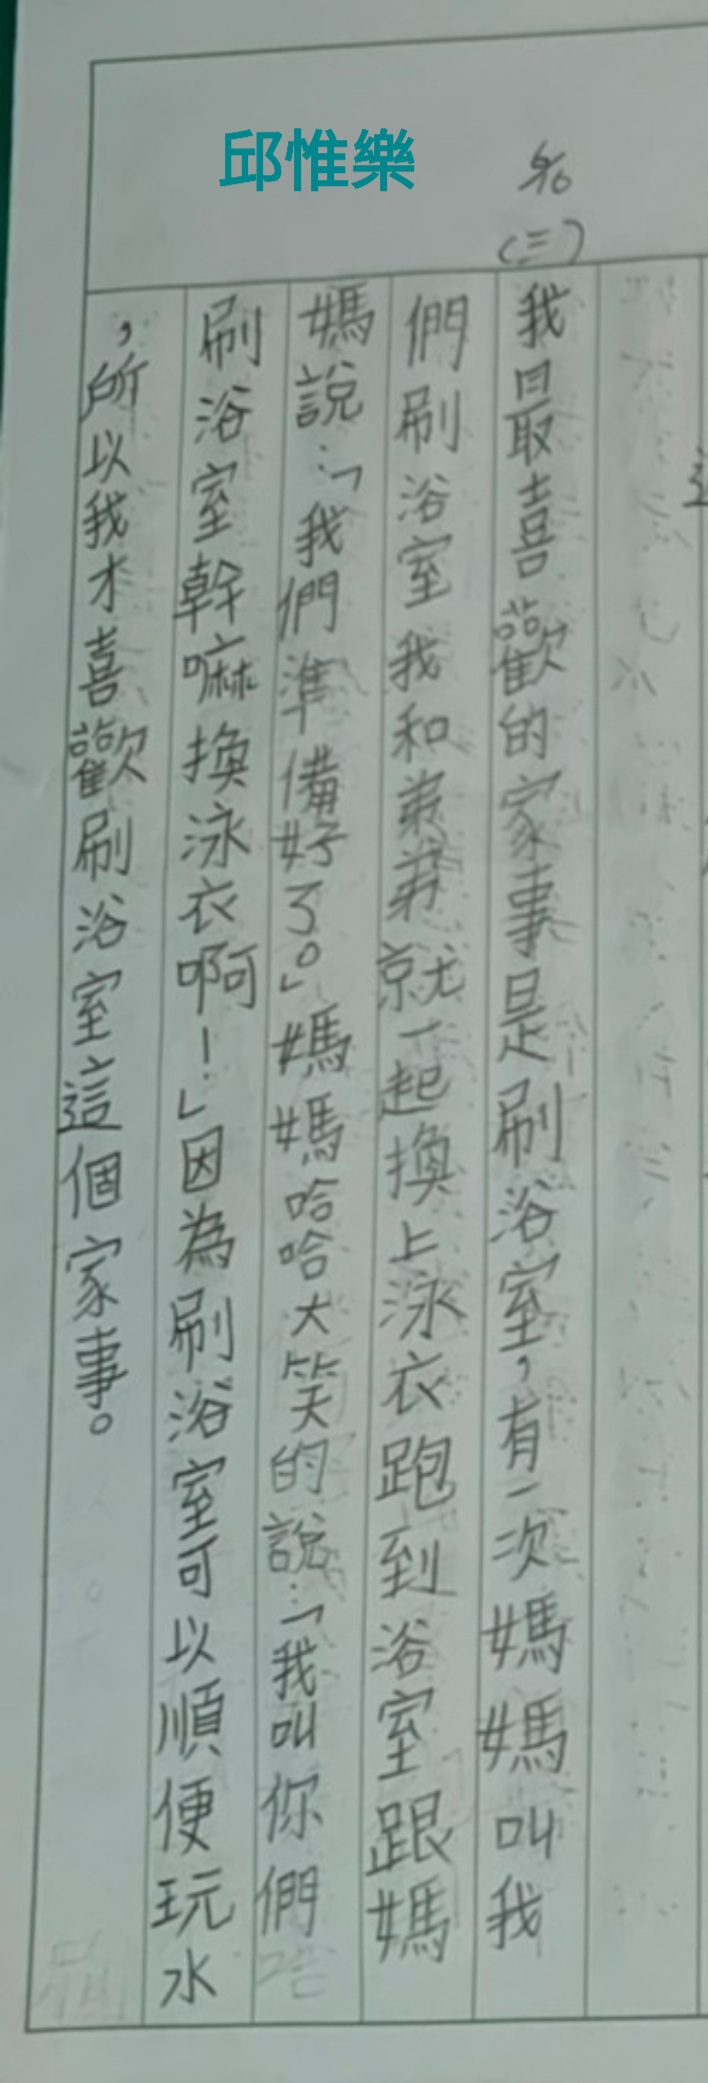 邱惟樂
(三)
我最喜歡的家事是刷浴室，有一次媽媽叫我
們刷浴室我和弟弟就一起換上泳衣跑到浴室跟媽
媽說：「我們準備好了。」媽媽哈哈大笑的說：「我叫你們
刷浴室幹嘛換泳衣啊！」因為刷浴室可以順便玩水
，所以我才喜歡刷浴室這個家事。